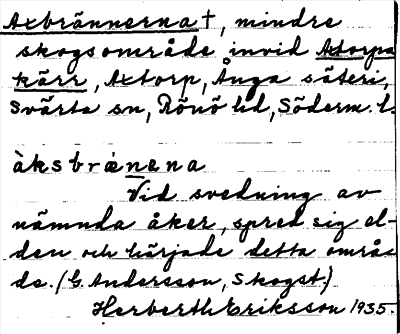 Axbrännerna †, mindre
skogsområde invid Axtorpa
kärr, Axtorp, Ånga säteri,
Svärta sn, Rönö hd, Söderm. l.
àksbrǽnena
Vid svedning av
nämnda åker, spred sig el-
den och härjade detta områ-
de. (G. Andersson, Skogst.)
Herberth Eriksson 1935.